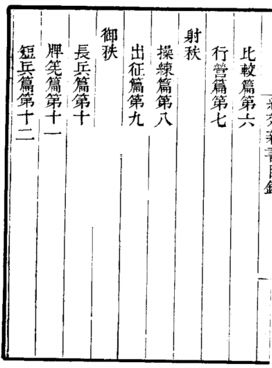 比較篇第六
行營篇第七
射秩
操練篇第八
出征篇第九
御秩
長兵篇第十
牌筅篇第十一
短兵篇第十二